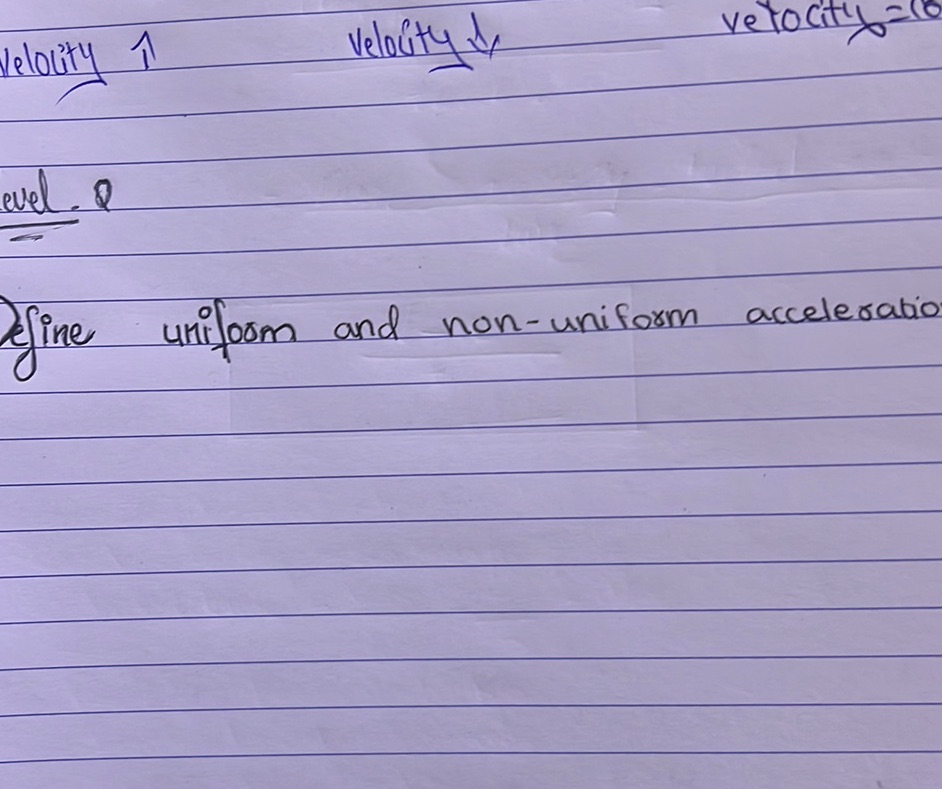 Velocity ↑ Velocity ↓ velocity =
evel. Q
Define uniform and non-uniform acceleratio